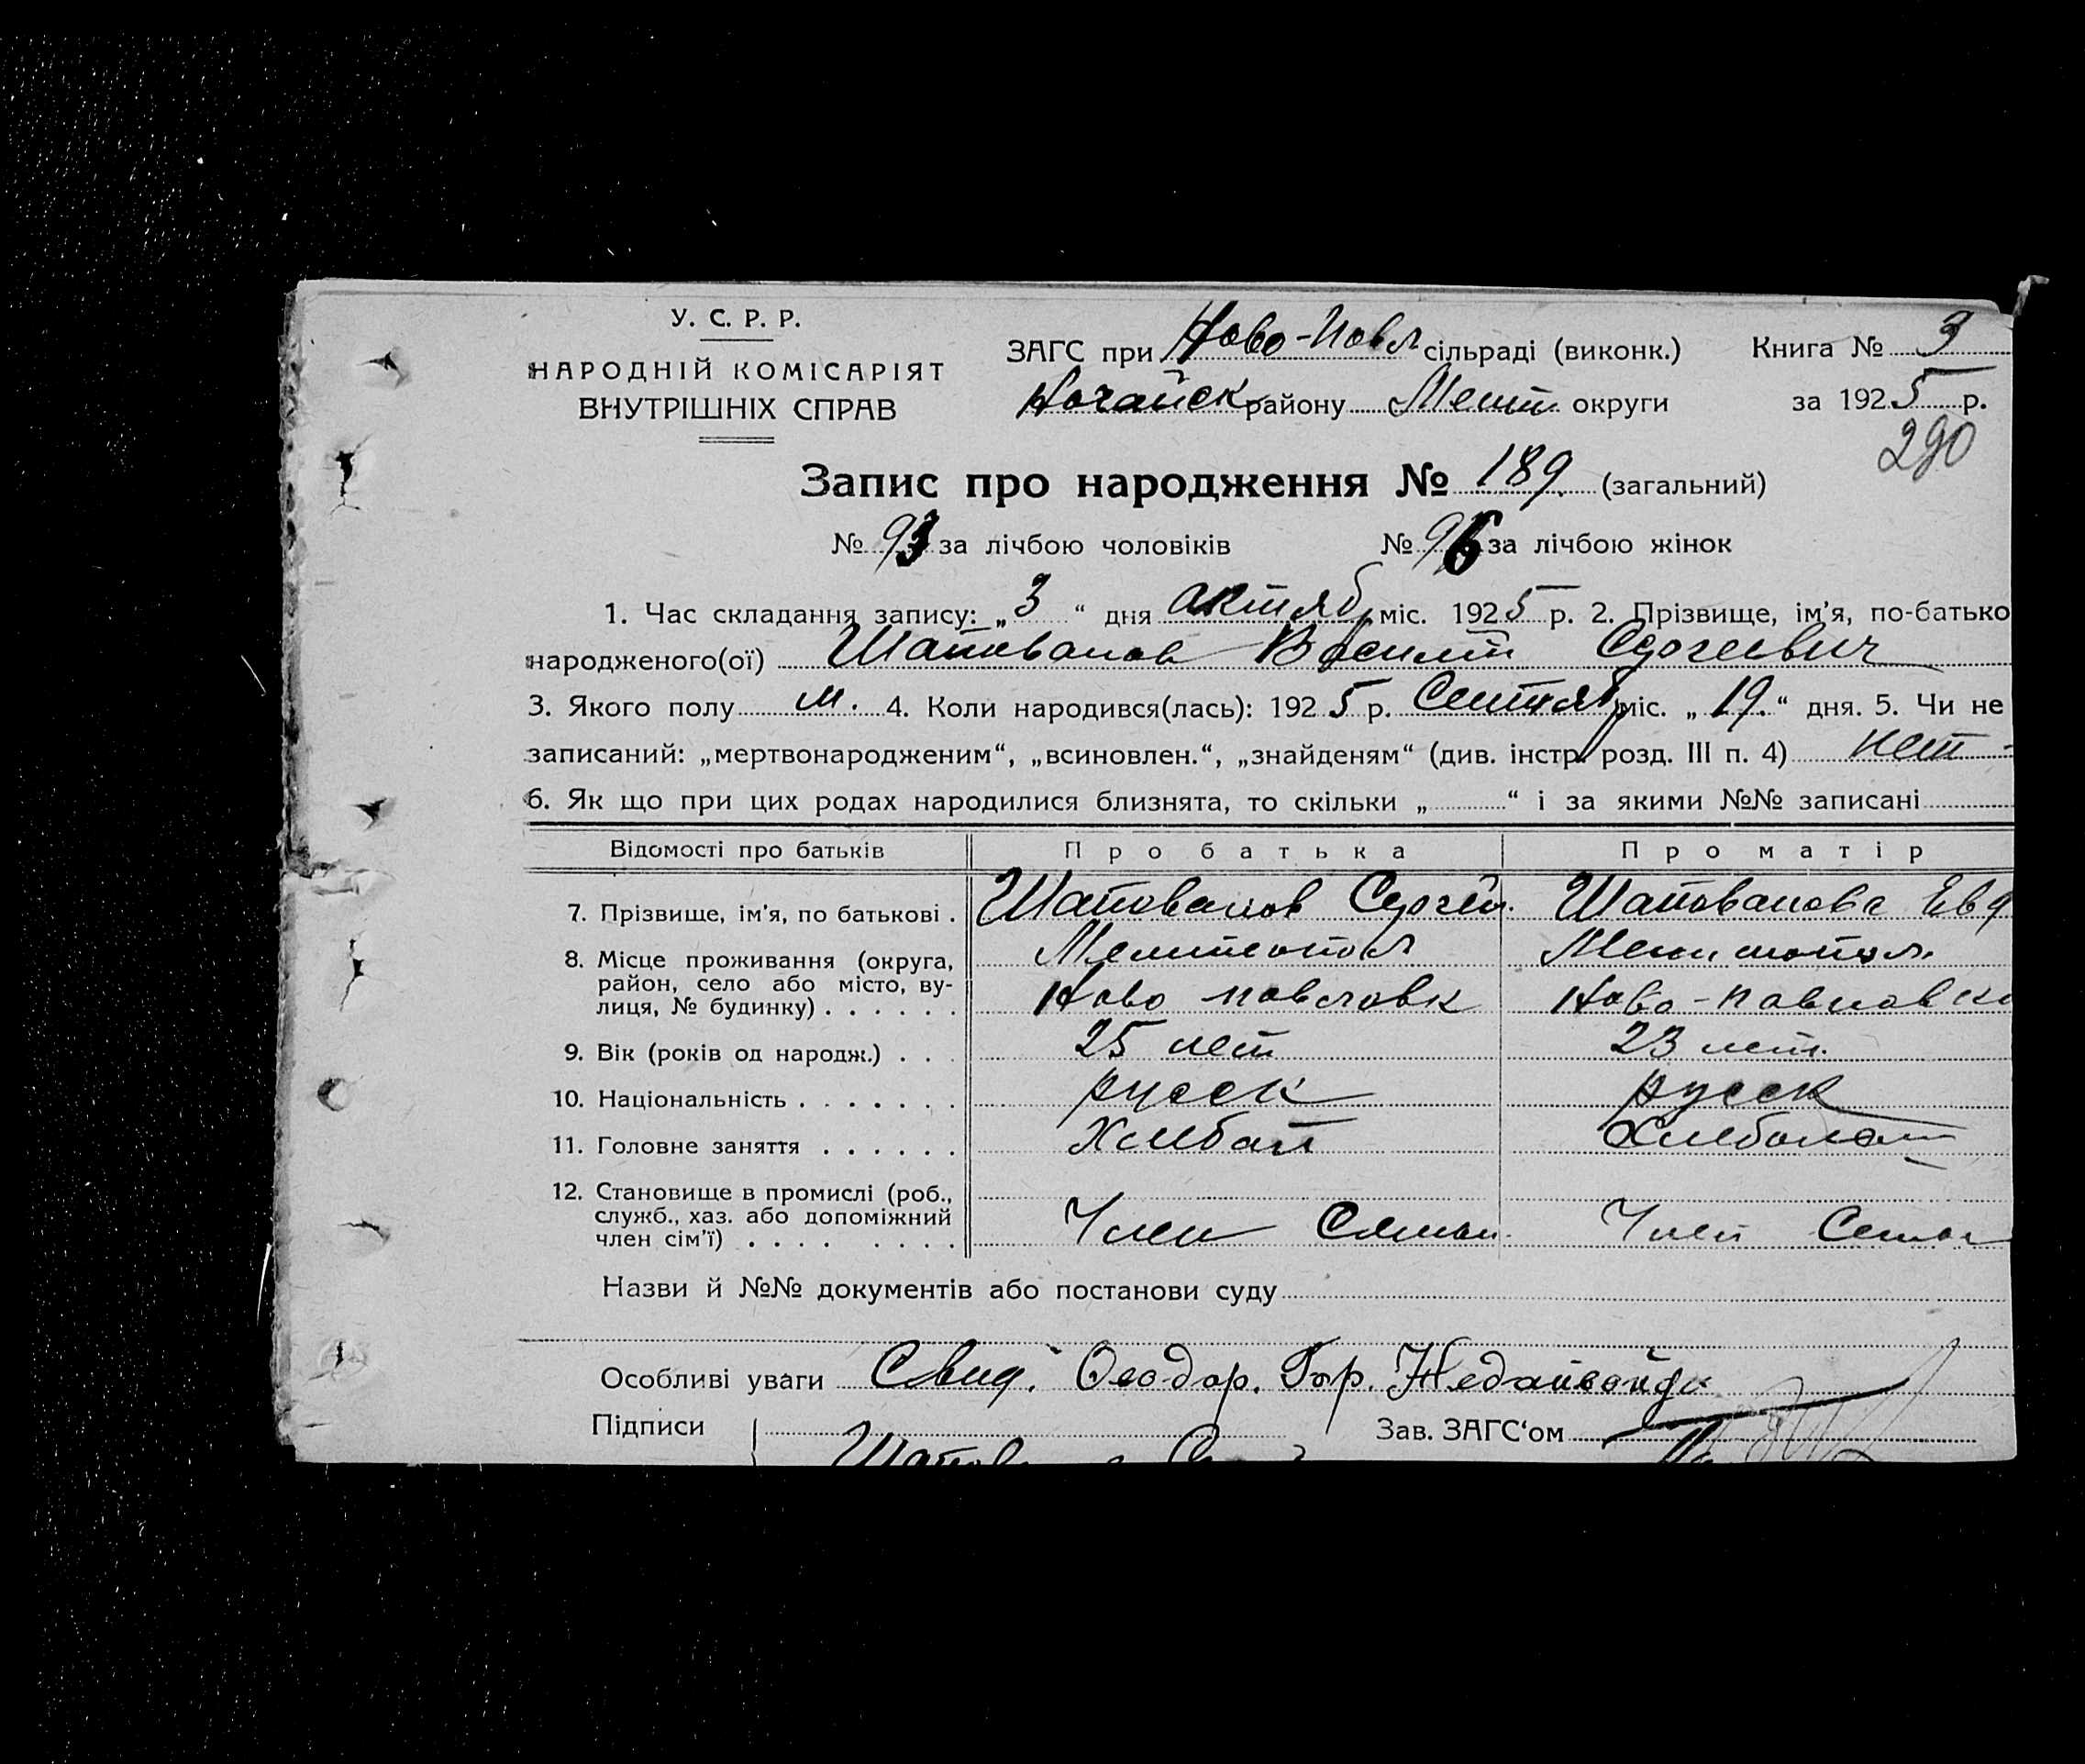 У. С. Р. Р.
НАРОДНІЙ КОМІСАРІЯТ
ВНУТРІШНІХ СПРАВ
ЗАГС при Ново-Павл сільраді (виконк.) Книга № 3
району Мелит. округи за 1925 р.
290
Запис про народження № 189. (загальний)
№ 93 за лічбою чоловіків № 96 за лічбою жінок
1. Час складання запису: „3“ дня октябр міс. 1925 р. 2. Прізвище, ім’я, по-батько
народженого(ої) Шаповалов Сергеевич
3. Якого полу м. 4. Коли народився(лась): 1925 р. Сентябр міс. „19.“ дня. 5. Чи не
записаний: „мертвонародженим“, „всиновлен.“, „знайденям“ (див. інстр. розд. III п. 4) нет -
6. Як що при цих родах народилися близнята, то скільки „ “ і за якими №№ записані
Відомості про батьків Про батька Про матір
7. Прізвище, ім’я, по батькові . Шаповалов Сергей. Шаповалова Евд
8. Місце проживання (округа, район, село або місто, вулиця, № будинку) . . . . . . Мелитопол
Ново павловк Ново-павловк
9. Вік (років од народж.) . . . 25 лет 23 лет.
10. Національність . . . . . . . русск русск
11. Головне заняття . . . . . . Хлебоп
12. Становище в промислі (роб.,
служб., хаз. або допоміжний
член сім’ї) . . . . . . . . Член Семьи. Член Семьи
Назви й №№ документів або постанови суду
Особливі уваги Свид. Феодор. Гр. Недайвойда
Підписи Зав. ЗАГС‘ом